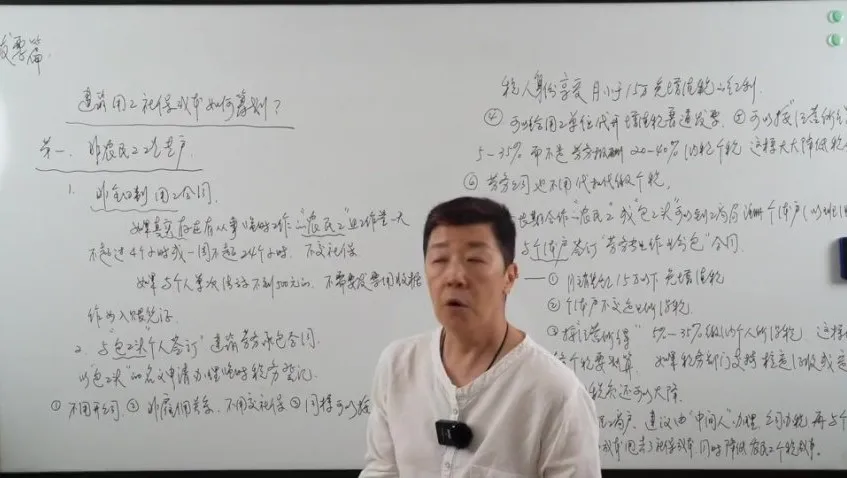 发票篇
建筑用工社保成本如何筹划?
第一、非农民工个体户
1. 非全日制用工合同
如果真实存在有从事临时工作的"农民工"且工作量一天
不超过4个小时或一周不超24个小时、不交社保
如果与个人单次结译不到500元的、不需要发票用收据
作为入账凭证
2. 与"包工头"个人签订"建筑劳务承包合同
以"包工头"的名义申请办理临时税务登记
①不用开公司 ②非雇佣关系、不用交社保 ③同样可以按
税人身份享受 月小于15万免增值税的红利
④可以给用工单位代开增值税普通发票、⑤可以按"经营所得
5-35% 而不是劳务报酬20-40%的个税 这样大大降低税
⑥劳务公司也不用代扣代缴个税
长期合作的"农民工"或"包工头"可以到工商局注册个体户
与个体户签订"劳务专业作业分包"合同
①月销售15万以下免增值税
②个体户不交企业所得税
③按"经营所得"5%-35%缴纳个人所得税、这样
个税要划算 如果税务部门支持核定征收
税负还可以大降
工商户、建议由"中间人"办理 公司办税 再与个
成本 同时降低农民工个税成本